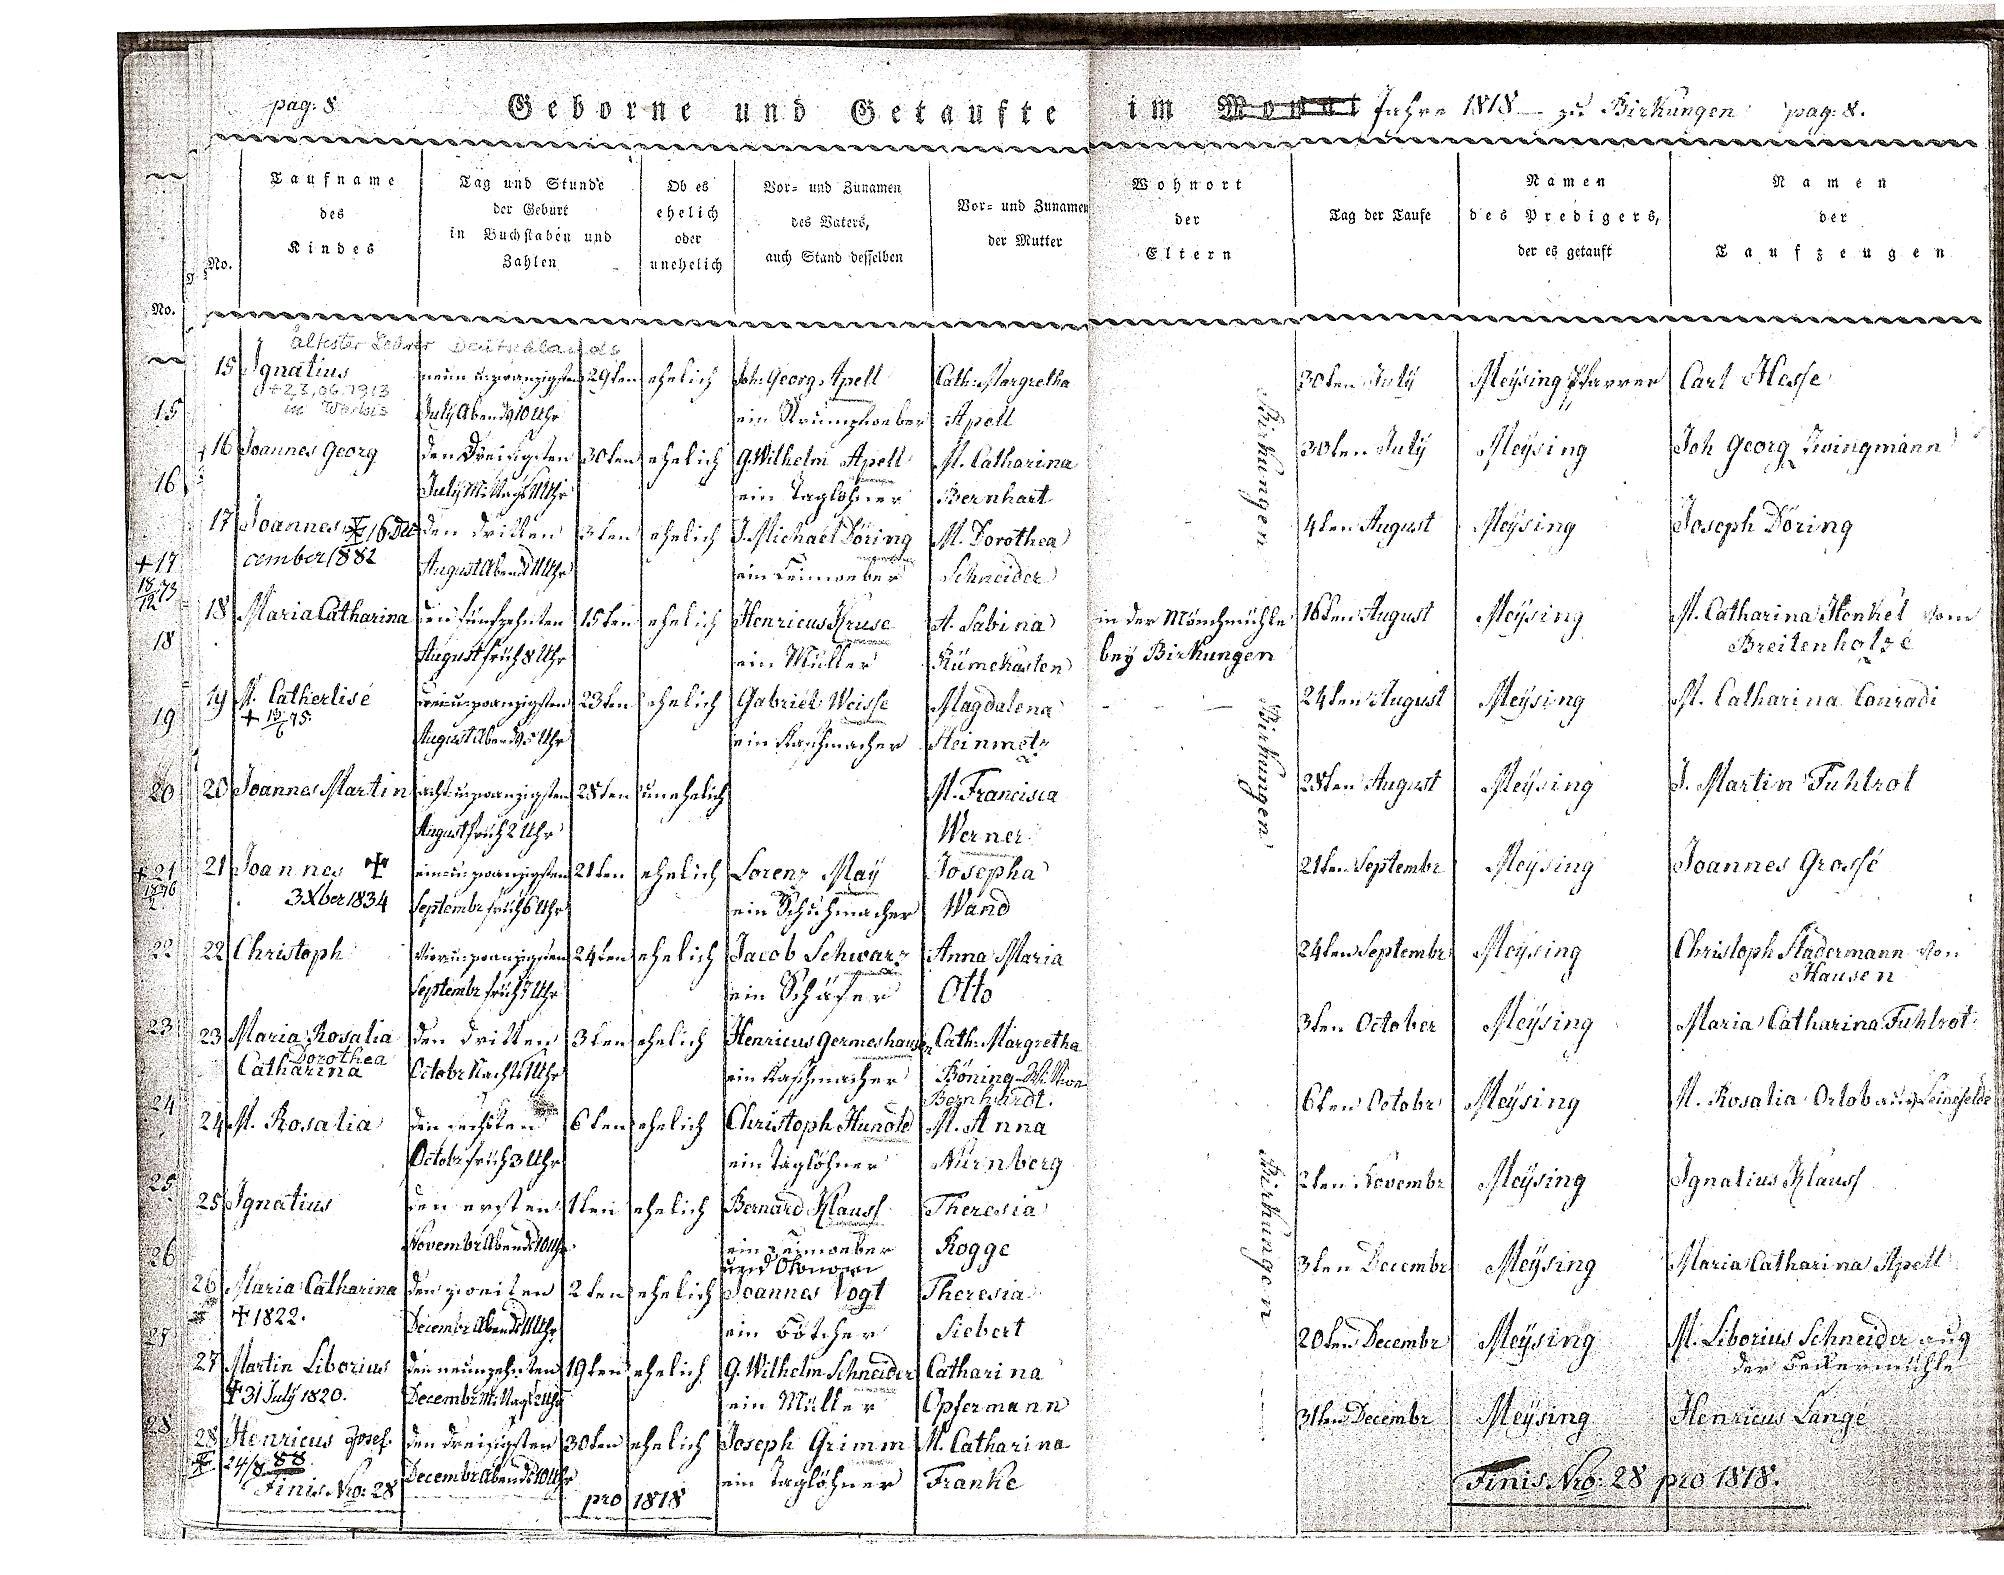 pag: 8 Geborne und Getaufte im Monat Jahre 1818 — zu Birkungen pag: 8.
No.
No.
Taufname des Kindes
Tag und Stunde der Geburt in Buchstaben und Zahlen
Ob es ehelich oder unehelich
Vor= und Zunamen des Vaters, auch Stand desselben
Vor= und Zunamen der Mutter
Wohnort der Eltern
Tag der Taufe
Namen des Predigers, der es getauft
Namen der Taufzeugen
ältester Lehrer Deutschlands
15 Ignatius neun u. zwanzigsten 29ten ehelich Joh: Georg Apell Cath: Margretha 30ten July Meÿsing Pfarrer Carl Hesse
+ 23.06.1913
in Worbis
15 July Abends 10 Uhr ein Strumpfweber Apell
16 Joannes Georg den Dreisigsten 30ten ehelich G. Wilhelm Apell M. Catharina 30ten July Meÿsing Joh Georg Zwingmann
16 July Mittags 11 Uhr ein Taglöhner Bernhart
17 Joannes 16 De den dritten 3ten ehelich J. Michael Döring M. Dorothea 4ten August Meÿsing Joseph Döring
cember 1882
+ 17 August Abends 11 Uhr ein Leinweber Schneider
18 Maria Catharina den fünfzehnten 15ten ehelich Henricus Kruse A. Sabina in der Mönchmühle 16ten August Meÿsing M. Catharina Henkel vom
18 August früh 8 Uhr ein Müller Rümekasten beÿ Birkungen Breitenholze
19 M. Catherlise dreiu. zwanzigsten 23ten ehelich Gabriel Weisse Magdalena 24ten August Meÿsing M. Catharina Conradi
19 August Abends 5 Uhr ein Raschmacher Steinmetz
20 20 Joannes Martin acht u. zwanzigsten 28ten unehelich M. Francisca 28ten August Meÿsing J. Martin Fuhlrot
August früh 2 Uhr Werner
+ 21 21 Joannes einu. zwanzigsten 21ten ehelich Lorenz Maÿ Josepha 21ten Septembr Meÿsing Joannes Grosse
3 Xber 1834 Septembr früh 6 Uhr ein Schuhmacher Wand
22 22 Christoph vieru. zwanzigsten 24ten ehelich Jacob Schwarz Anna Maria 24ten Septembr Meÿsing Christoph Stadermann von
Septembr früh 7 Uhr ein Schäfer Otto Hausen
23 23 Maria Rosalia den dritten 3ten ehelich Henricus Germeshausen Cath: Margretha 3ten October Meÿsing Maria Catharina Fuhlrot
Dorothea
Catharina Octobr Nachts 1 Uhr ein Raschmacher Böning
Bernhardt.
24 24 M. Rosalia den sechsten 6ten ehelich Christoph Hunold M. Anna 6ten Octobr Meÿsing M. Rosalia Ortob aus Leinefelde
Octobr früh 3 Uhr ein Taglöhner Nürnberg
25 25 Ignatius den ersten 1ten ehelich Bernard Klauss Theresia 2ten Novembr Meÿsing Ignatius Klauss
Novembr Abends 10 Uhr ein Leinweber Rogge
und Okonom
26 26 Maria Catharina den zweiten 2ten ehelich Joannes Vogt Theresia 3ten Decembr Meÿsing Maria Catharina Apell
+ 1822. Decembr Abends 11 Uhr ein Bötcher Siebert
27 27 Martin Liborius den neunzehnten 19ten ehelich G. Wilhelm Schneider Catharina 20ten Decembr Meÿsing M. Liborius Schneider aus
der Beckermühle
+ 31 July 1820. Decembr Mittags 2 Uhr ein Müller Opfermann
28 28 Henricus Josef. den Dreisigsten 30ten ehelich Joseph Grimm M. Catharina 31ten Decembr Meÿsing Henricus Lange
24/8 88 Decembr Abends 10 Uhr ein Taglöhner Franke
Birkungen
Birkungen
Birkungen
Finis Nro: 28 pro 1818 Finis Nro: 28 pro 1818.